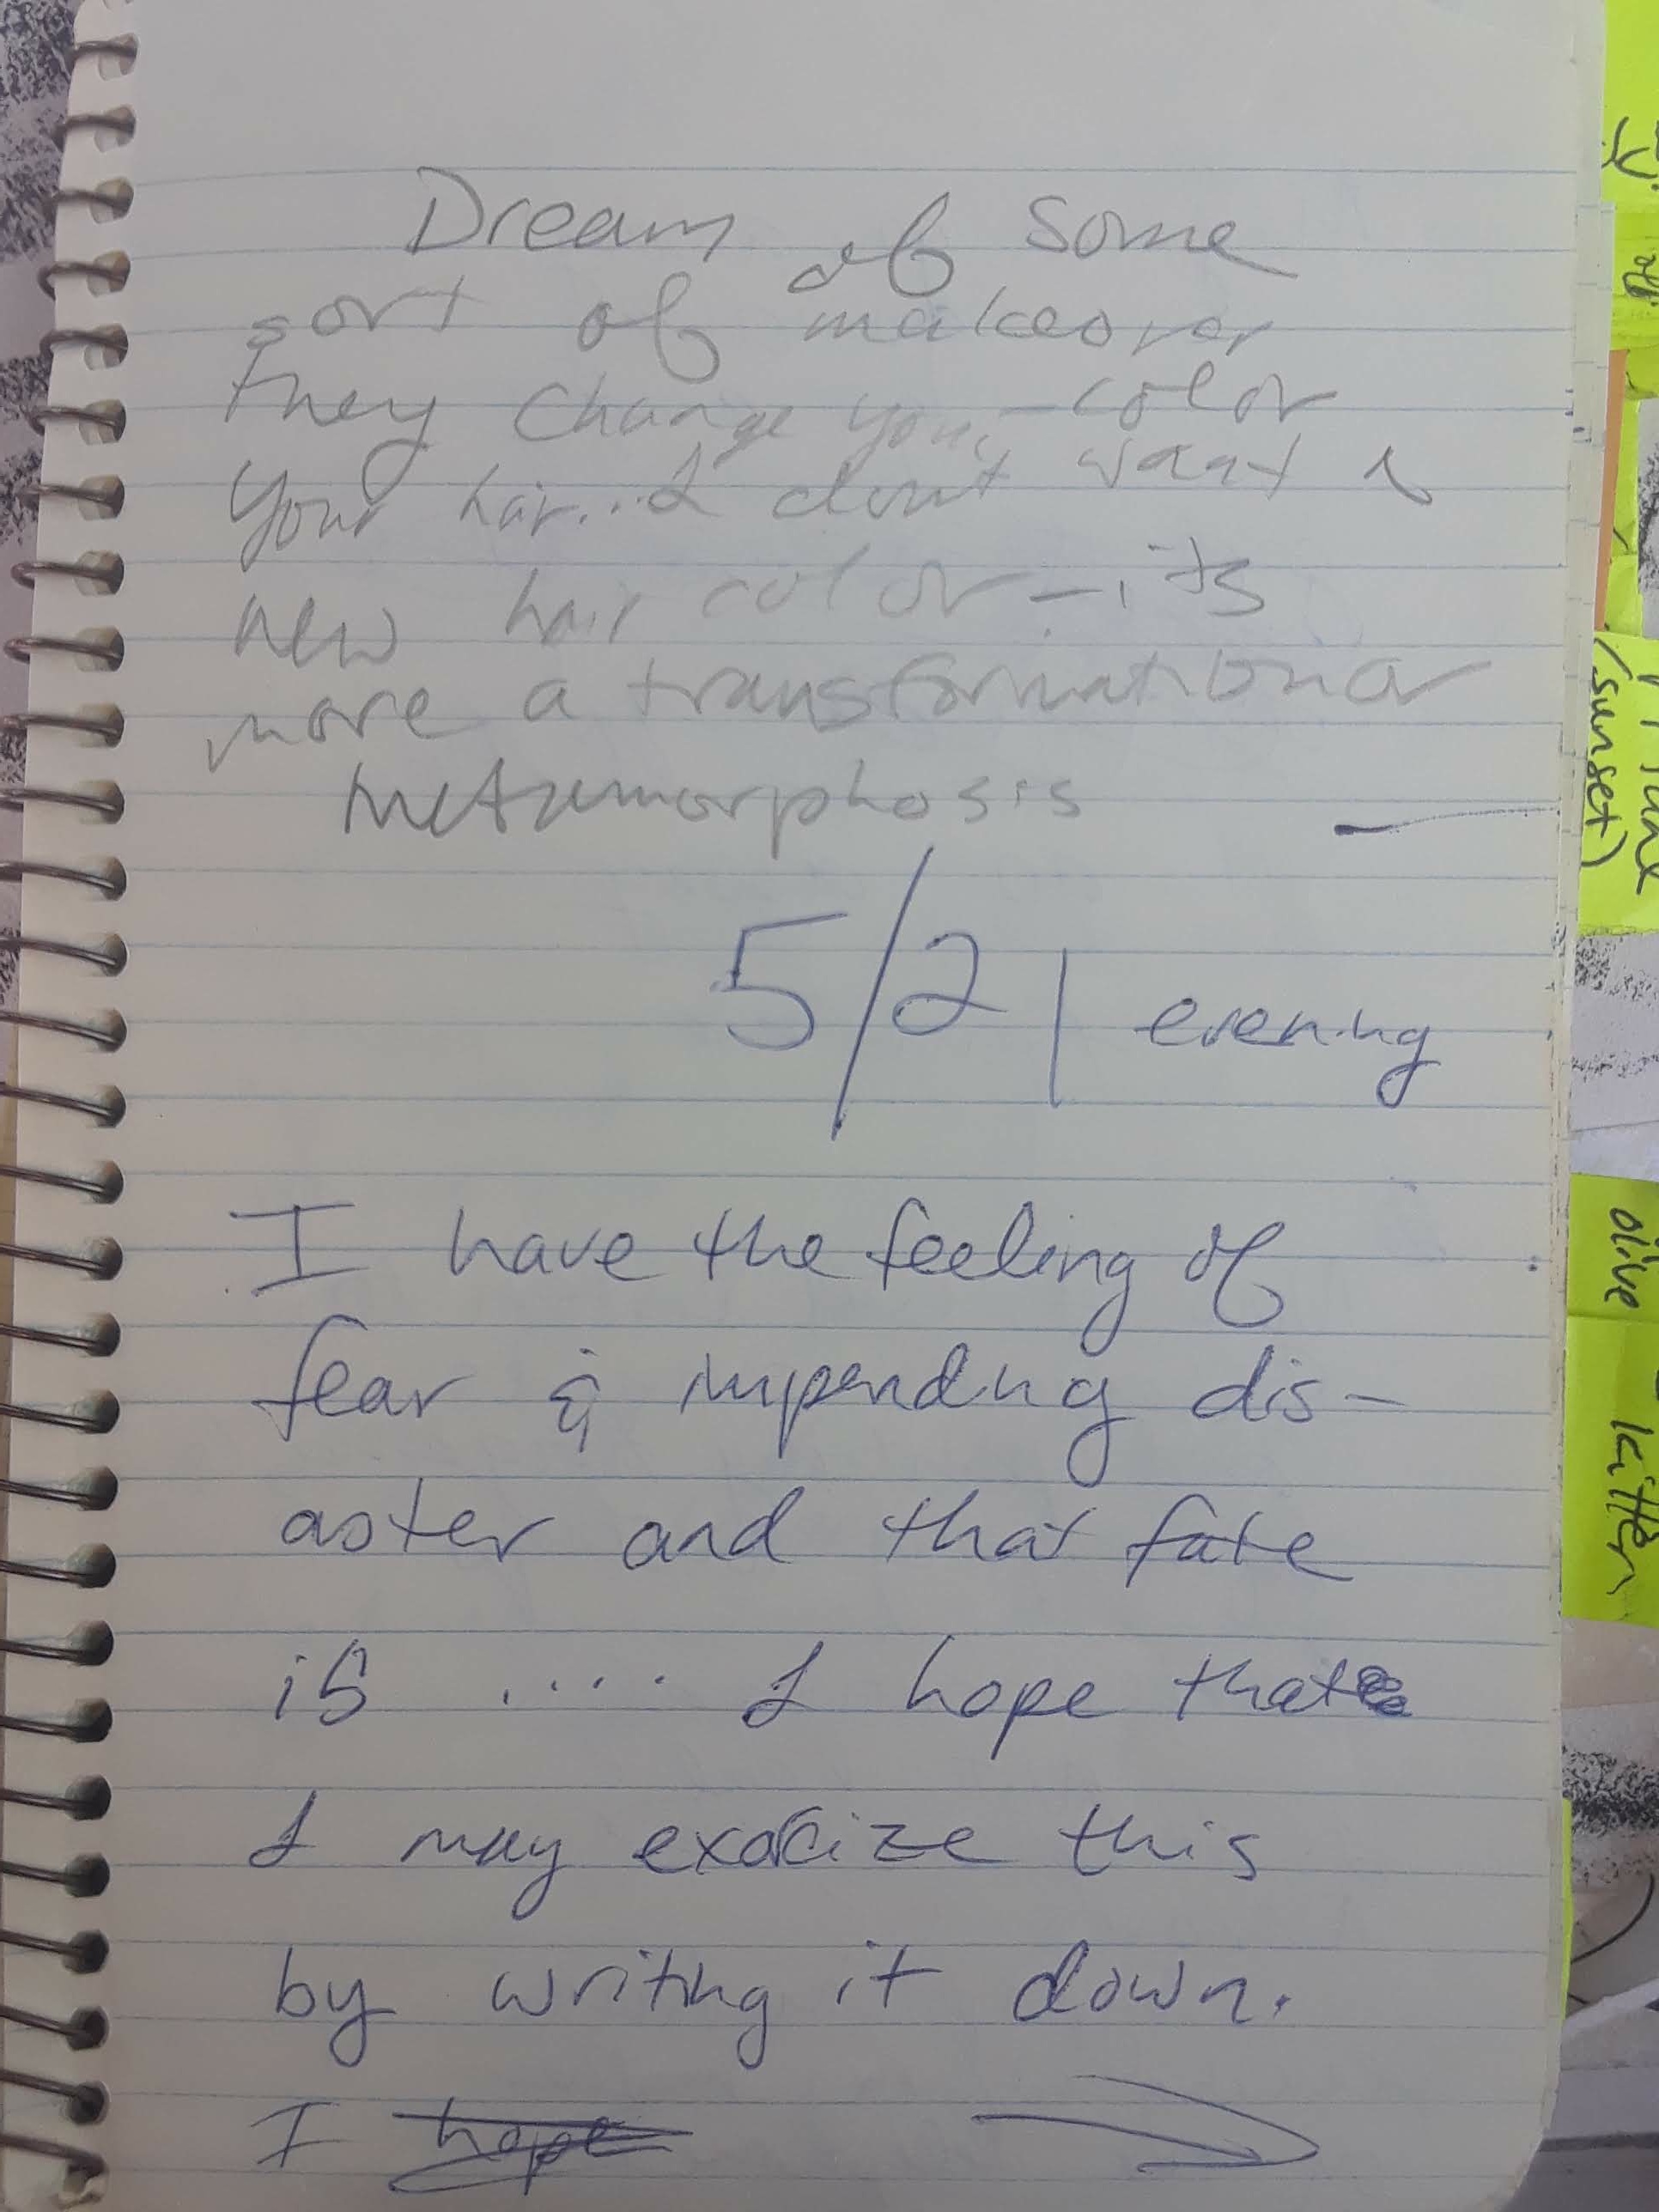 Dream of some
sort of makeover
they change your color
your hair...I dont want a
new hair color - its
more a transformation or
metamorphosis
5/21 evening
I have the feeling of
fear & impending dis-
aster and that fate
is .... I hope that
I may exorcize this
by writing it down.
I hope
(sunset)
olive
kitten